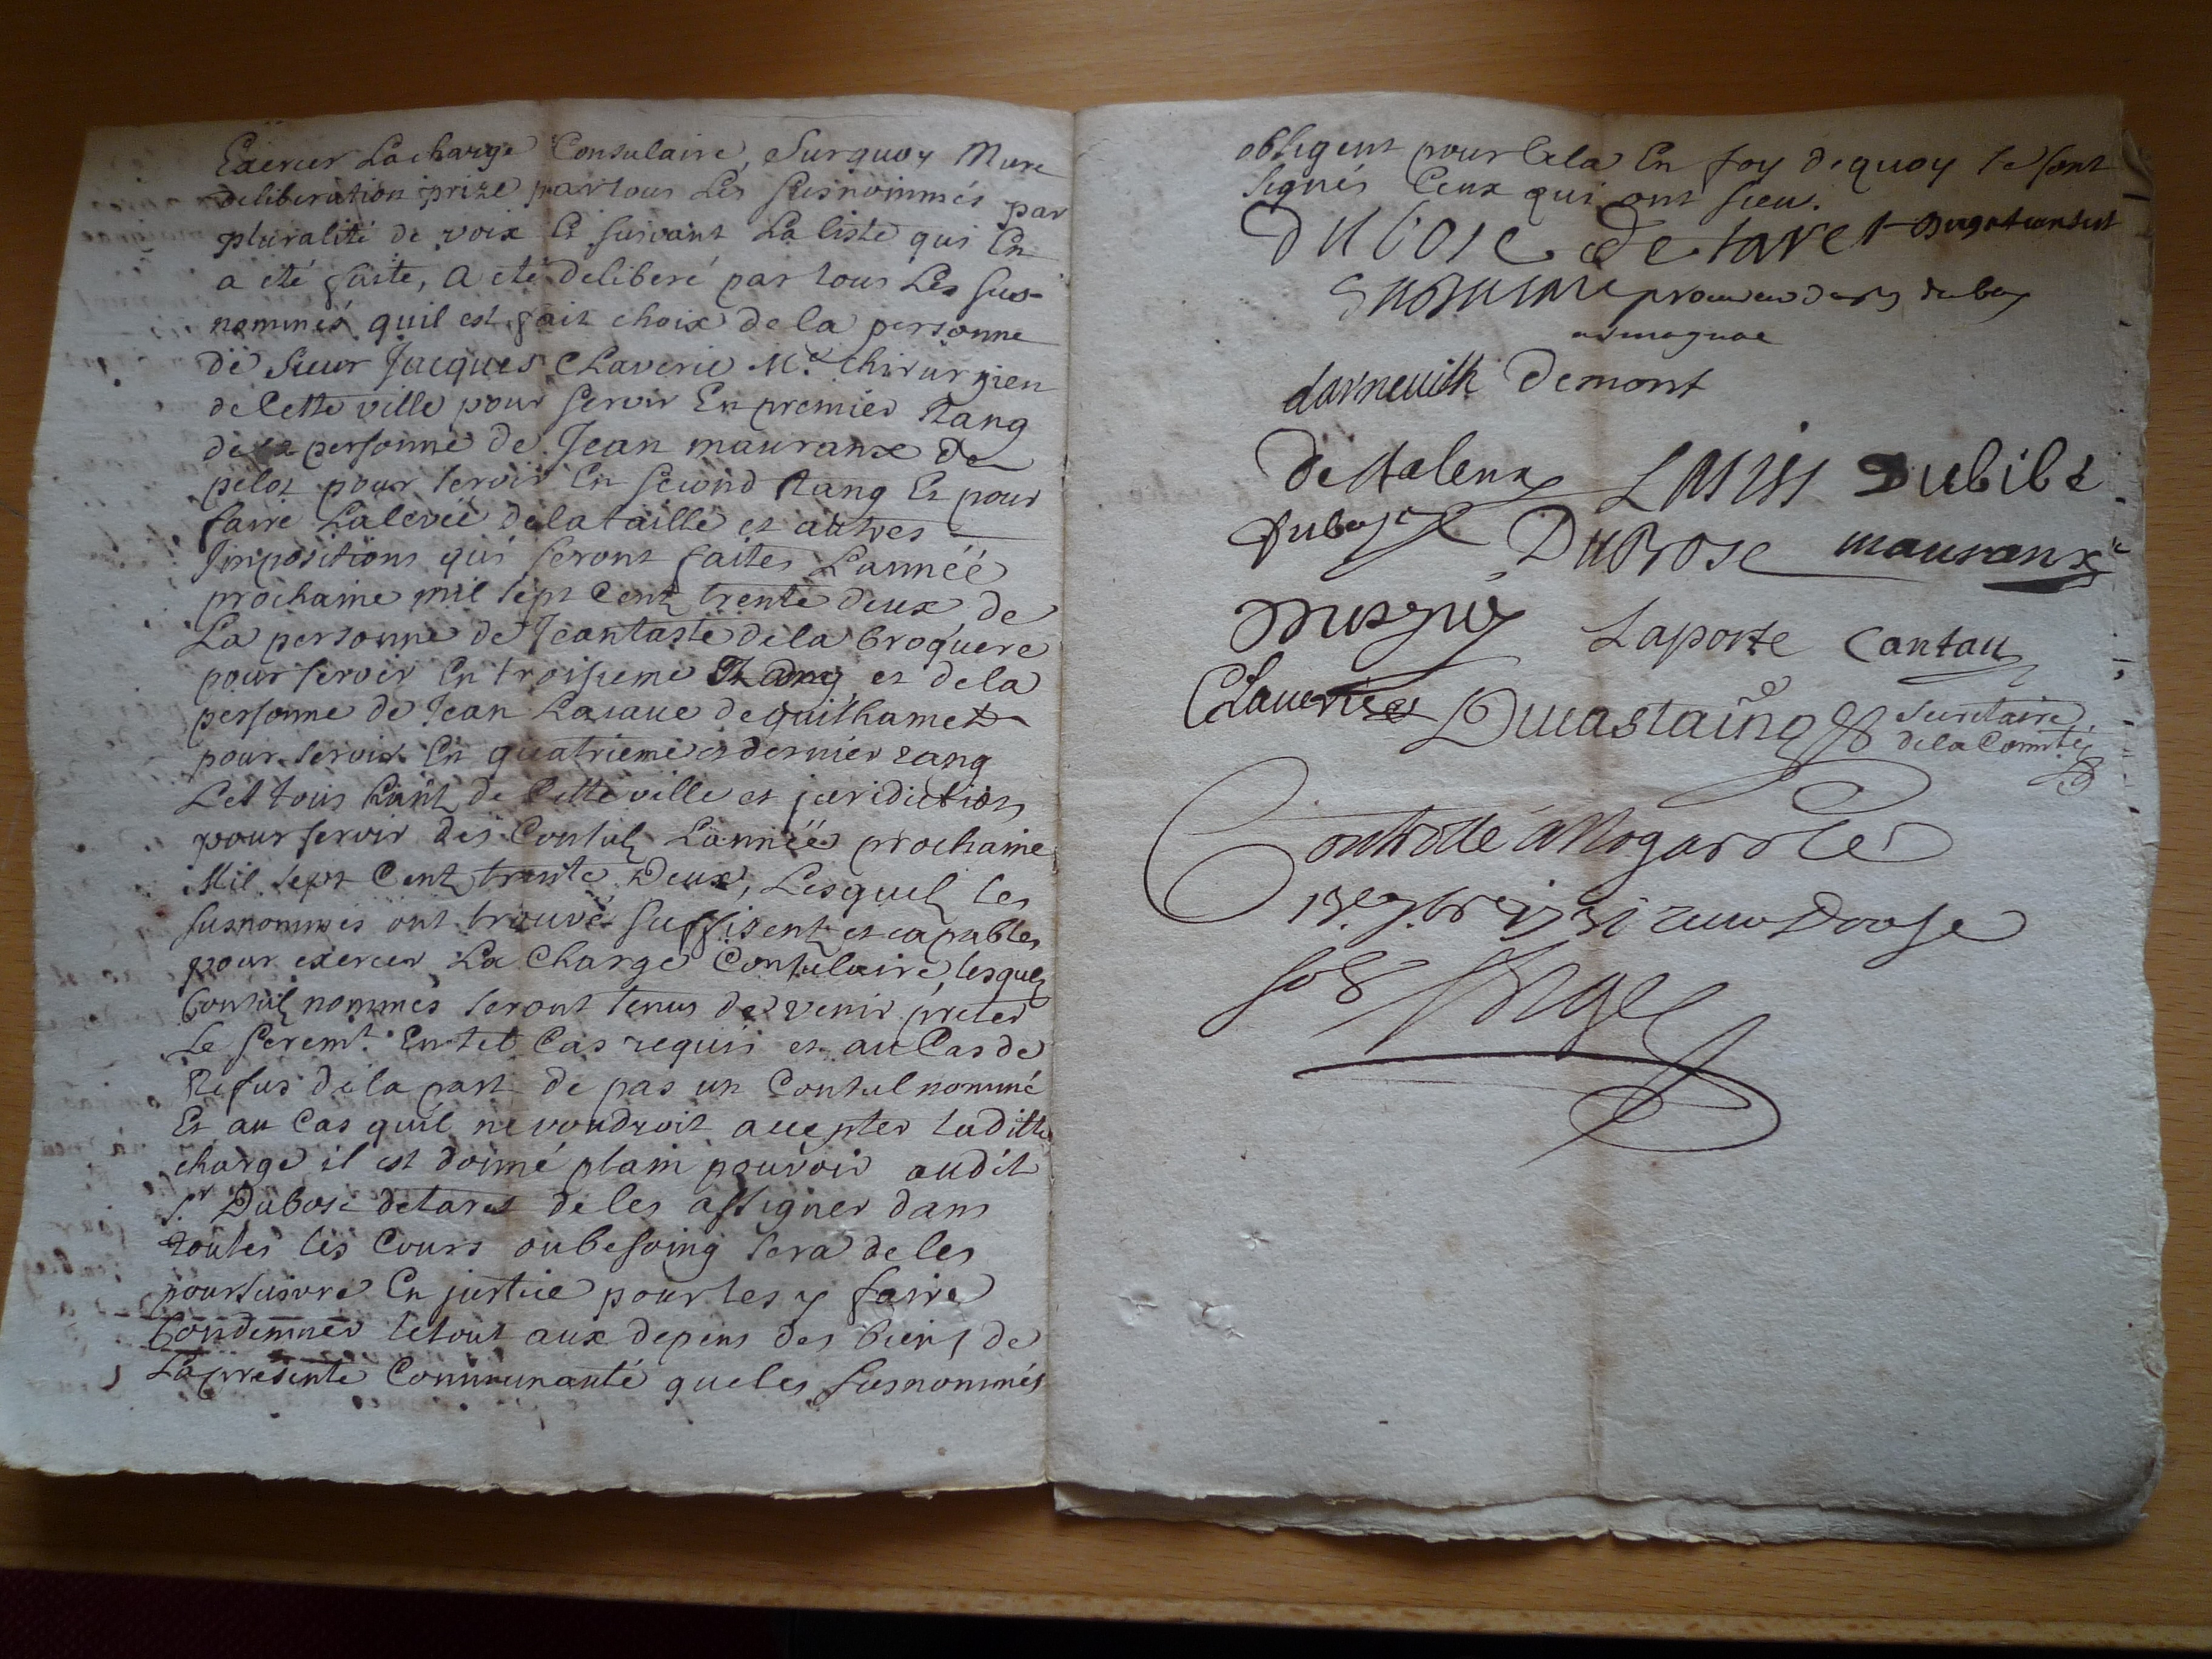 Exercer La charge Consulaire, Surquoy Mure
deliberation prize par tous Les susnommés par
pluralité de voix Et suivant La liste qui En
a eté faite, a eté deliberé par tous Les sus-
nommés quil est fait choix de la personne
de sieur Jacques Claverie Me. chirurgien
de Cette ville pour servir En premier Rang
de la personne de Jean mauranx de
pelot pour servir En second Rang Et pour
faire La levée de la taille et autres
Impositions qui seront faites L'année
prochaine mil sept Cent trente deux de
La personne de Jean taste de la broquere
pour servir En troisieme Rang et de la
personne de Jean Lasave de guilhamet
pour servir En quatrieme et dernier rang
Les tous de Cette ville et juridiction
pour servir des Consuls L'année prochaine
Mil sept Cent trente Deux, Lesquels les
susnommés ont trouvé suffisents et capables
pour exercer La Charge Consulaire, lesquels
Consuls nommés seront tenus de venir preter
Le seremt. En tel Cas requis et au Cas de
Refus de la part de pas un Consul nommé
Et au Cas quil ne voudroit accepter laditte
charge il est donné plain pouvoir audit
Sr Dubosc detaret de les assigner dans
toutes les Cours ou besoing sera de les
poursuivre En justice pour les y faire
Condemner le tout aux depens des biens de
La presente Communauté que les susnommés
obligent pour Cela En foy dequoy se sont
signés Ceux qui ont sceu.
Dubosc De taret
darmeuilh Demont
Dubosc mauranx
Laporte Cantau
Claverie Ducastaing secretaire
de la Commté
Controllé a Nogaro le
1731 receu Douse
sols